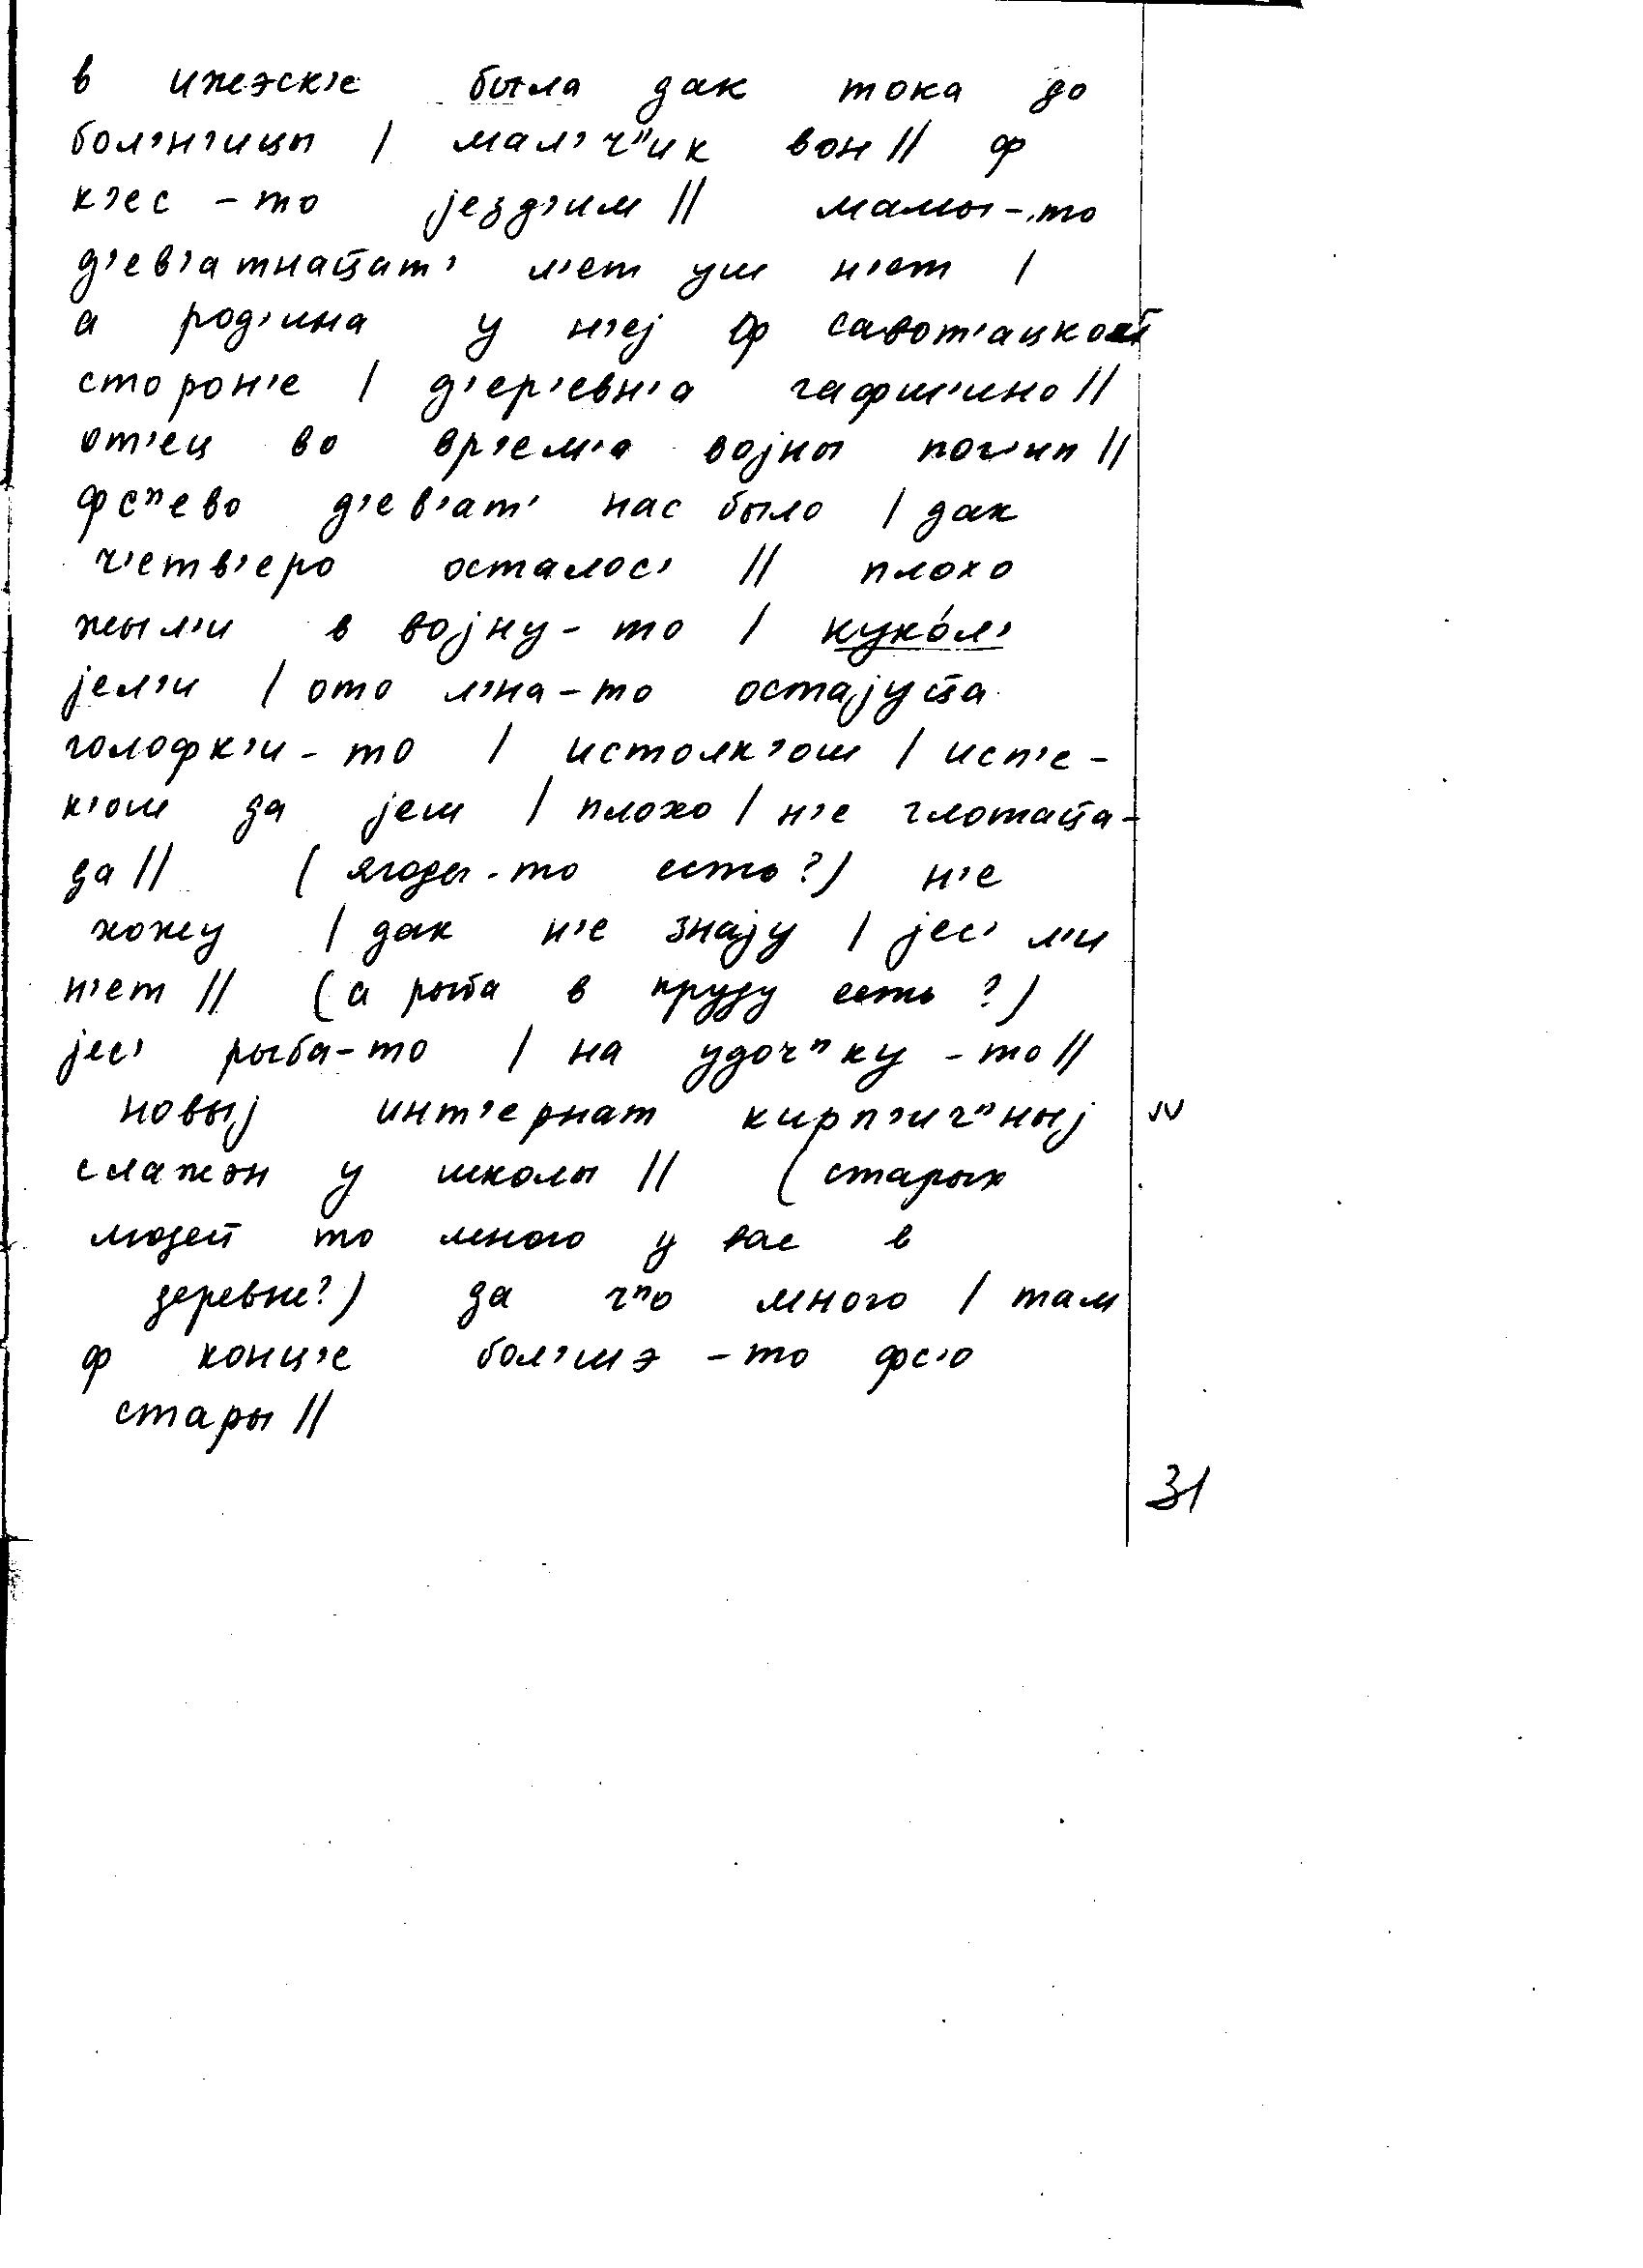 в ижэск'е была дак тока до
бол'н'ицы | мал'ч"ик вон || ф
к'ес -то језд'им || мамы-то
д'ев'атнацат' л'ет уш н'ет |
а род'ина у н'еј ф савот'ацкой
сторон'е | д'ер'евн'а гафш'ино ||
от'ец во вр'ем'а војны пог'ип ||
фс"ево д'ев'ат' нас было | дак
ч'етв'еро осталос' || плохо
жыл'и в војну-то | куко́л'
јел'и | ото л'на-то остајуц̅а
голофк'и-то | истолк'ош | исп'е-
к'ош да јеш | плохо | н'е глотац̅а-
да || (ягоды-то есть?) н'е
хожу | дак н'е знају | јес' л'и
н'ет || (а рыба в пруду есть?)
јес' рыба-то | на удоч"ку -то ||
новыј инт'ернат кирп'ич"ныј
слажон у школы || (старых
людей то много у вас в
деревне?) да ч"о много | там
ф конц'е бол'шэ -то фс'о
стары ||
31